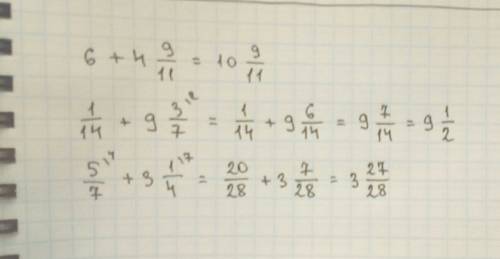 6 + 4 9/11 = 10 9/11
1/14 + 9 3/7 ^2 = 1/14 + 9 6/14 = 9 7/14 = 9 1/2
5/7 ^4 + 3 1/4 ^7 = 20/28 + 3 7/28 = 3 27/28